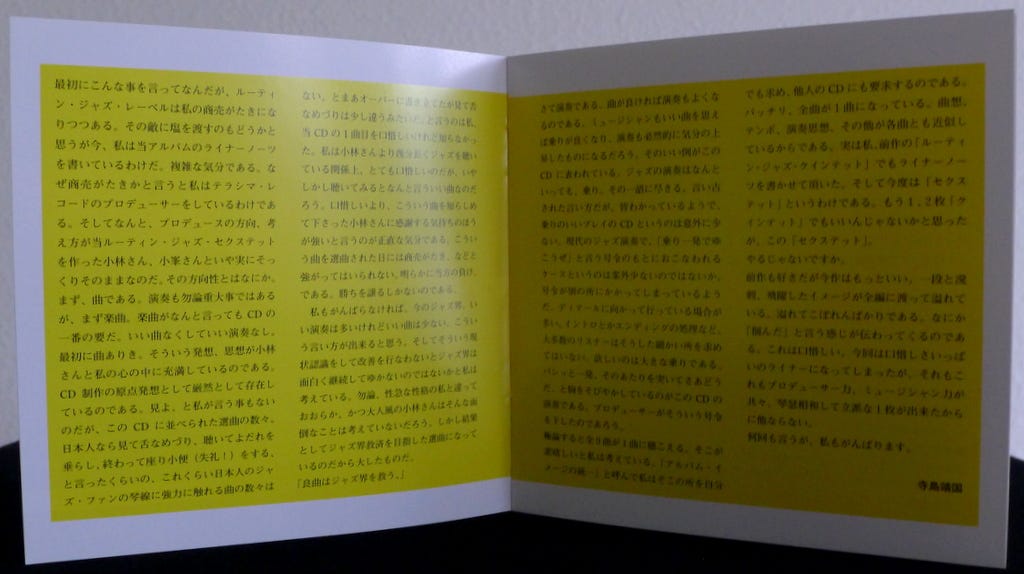 最初にこんな事を言ってなんだが、ルーティ
ン・ジャズ・レーベルは私の商売がたきにな
りつつある。その敵に塩を渡すのもどうかと
思うが今、私は当アルバムのライナーノーツ
を書いているわけだ。複雑な気分である。な
ぜ商売がたきかと言うと私はテラシマ・レ
コードのプロデューサーをしているわけであ
る。そしてなんと、プロデュースの方向、考
え方が当ルーティン・ジャズ・セクステット
を作った小林さん、小峯さんといや実にそっ
くりそのままなのだ。その方向性とはなにか。
まず、曲である。演奏も勿論重大事ではある
が、まず楽曲。楽曲がなんと言ってもCDの
一番の要だ。いい曲なくしていい演奏なし。
最初に曲ありき。そういう発想、思想が小林
さんと私の心の中に充満しているのである。
CD制作の原点発想として厳然として存在し
ているのである。見よ、と私が言う事もない
のだが、このCDに並べられた選曲の数々。
日本人なら見て舌なめづり、聴いてよだれを
垂らし、終わって座り小便（失礼！）をする、
と言ったくらいの、これくらい日本人のジャ
ズ・ファンの琴線に強力に触れる曲の数々は
ない、とまあオーバーに書き立てたが見て舌
なめづりは少し違うみたいだ。と言うのは私、
当CDの1曲目を口惜しいけれど知らなかっ
た。私は小林さんより幾分長くジャズを聴い
ている関係上、とても口惜しいのだが、いや
しかし聴いてみるとなんと言ういい曲なのだ
ろう。口惜しいより、こういう曲を知らしめ
て下さった小林さんに感謝する気持ちのほう
が強いと言うのが正直な気分である。こうい
う曲を選曲された日には商売がたき、などと
強がってはいられない。明らかに当方の負け
である。勝ちを譲るしかないのである。
私もがんばらなければ。今のジャズ界、い
い演奏は多いけれどいい曲は少ない。こうい
う言い方が出来ると思う。そしてそういう現
状認識をして改善を行なわないとジャズ界は
面白く継続してゆかないのではないかと私は
考えている。勿論、性急な性格の私と違って
おおらか、かつ大人風の小林さんはそんな面
倒なことは考えていないだろう。しかし結果
としてジャズ界救済を目指した選曲になって
いるのだから大したものだ。
「良曲はジャズ界を救う。」
さて演奏である。曲が良ければ演奏もよくな
るのである。ミュージシャンもいい曲を思え
ば乗りが良くなり、演奏も必然的に気分の上
昇したものになるだろう。そのいい例がこの
CDに表われている。ジャズの演奏はなんと
いっても、乗り。その一語に尽きる。言い古
された言い方だが、皆わかっているようで、
乗りのいいプレイのCDというのは意外に少
ない。現代のジャズ演奏で、「乗り一発でゆ
こうぜ」と言う号令のもとにおこなわれる
ケースというのは案外少ないのではないか。
号令が別の所にかかってしまっているよう
だ。ディテールに向かって行っている場合が
多い。イントロとかエンディングの処理など、
大多数のリスナーはそうした細かい所を求め
てはいない。欲しいのは大きな乗りである。
バシッと一発、そのあたりを突いてさあどう
だ、と胸をそびやかしているのがこのCDの
演奏である。プロデューサーがそういう号令
を下したのであろう。
極論すると全9曲が1曲に聴こえる。そこが
素晴しいと私は考えている。「アルバム・イ
メージの統一」と呼んで私はそこの所を自分
でも求め、他人のCDにも要求するのである。
バッチリ、全曲が1曲になっている。曲想、
テンポ、演奏思想、その他が各曲とも近似し
ているからである。実は私、前作の「ルーティ
ン・ジャズ・クインテット」でもライナーノー
ツを書かせて頂いた。そして今度は「セクス
テット」というわけである。もう1、2枚「ク
インテット」でもいいんじゃないかと思った
が、この「セクステット」。
やるじゃないですか。
前作も好きだが今作はもっといい。一段と溌
剌、飛躍したイメージが全編に渡って溢れて
いる。溢れてこぼれんばかりである。なにか
「掴んだ」と言う感じが伝わってくるのであ
る。これは口惜しい。今回は口惜しさいっぱ
いのライナーになってしまったが、それもこ
れもプロデューサー力、ミュージシャン力が
共々、琴瑟相和して立派な1枚が出来たから
に他ならない。
何回も言うが、私もがんばります。
寺島靖国